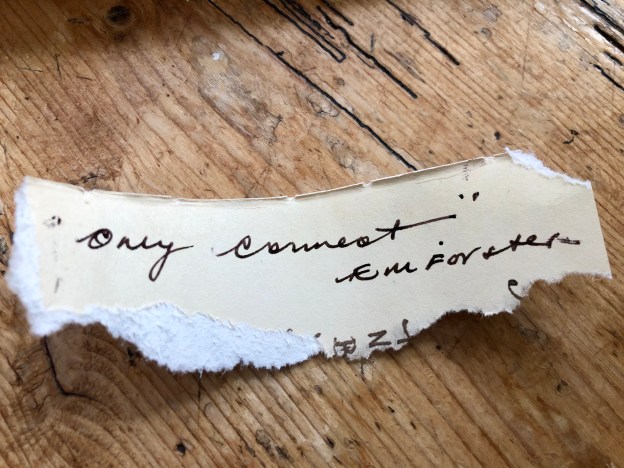 "only connect"
EM Forster